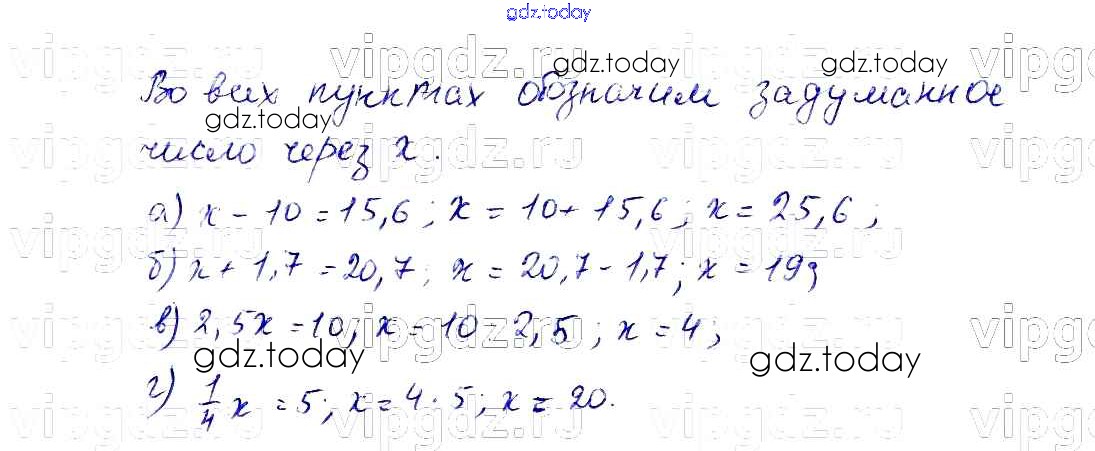 gdz.today
Во всех пунктах обозначим задуманное
число через x.
а) x - 10 = 15,6; x = 10 + 15,6; x = 25,6;
б) x + 1,7 = 20,7; x = 20,7 - 1,7; x = 19;
в) 2,5x = 10; x = 10 : 2,5; x = 4;
г) 1/4 x = 5; x = 4 · 5; x = 20.
gdz.today
gdz.today
gdz.today
gdz.today
gdz.today
vipgdz.ru
vipgdz.ru
vipgdz.ru
vipgdz.ru
vipgdz.ru